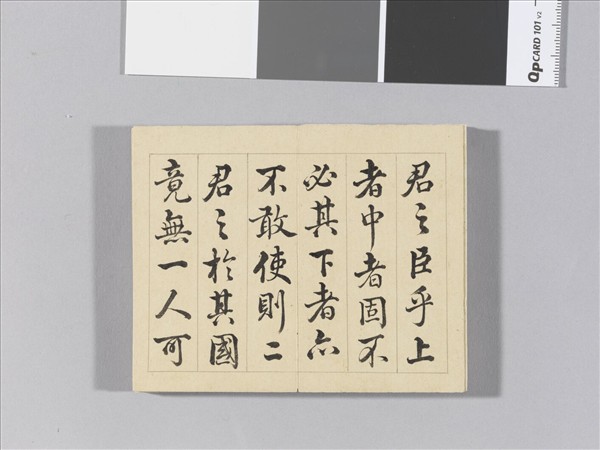 君之臣乎上
者中者固不
必其下者亦
不敢使則二
君之於其國
竟無一人可
QpCARD 101 v2